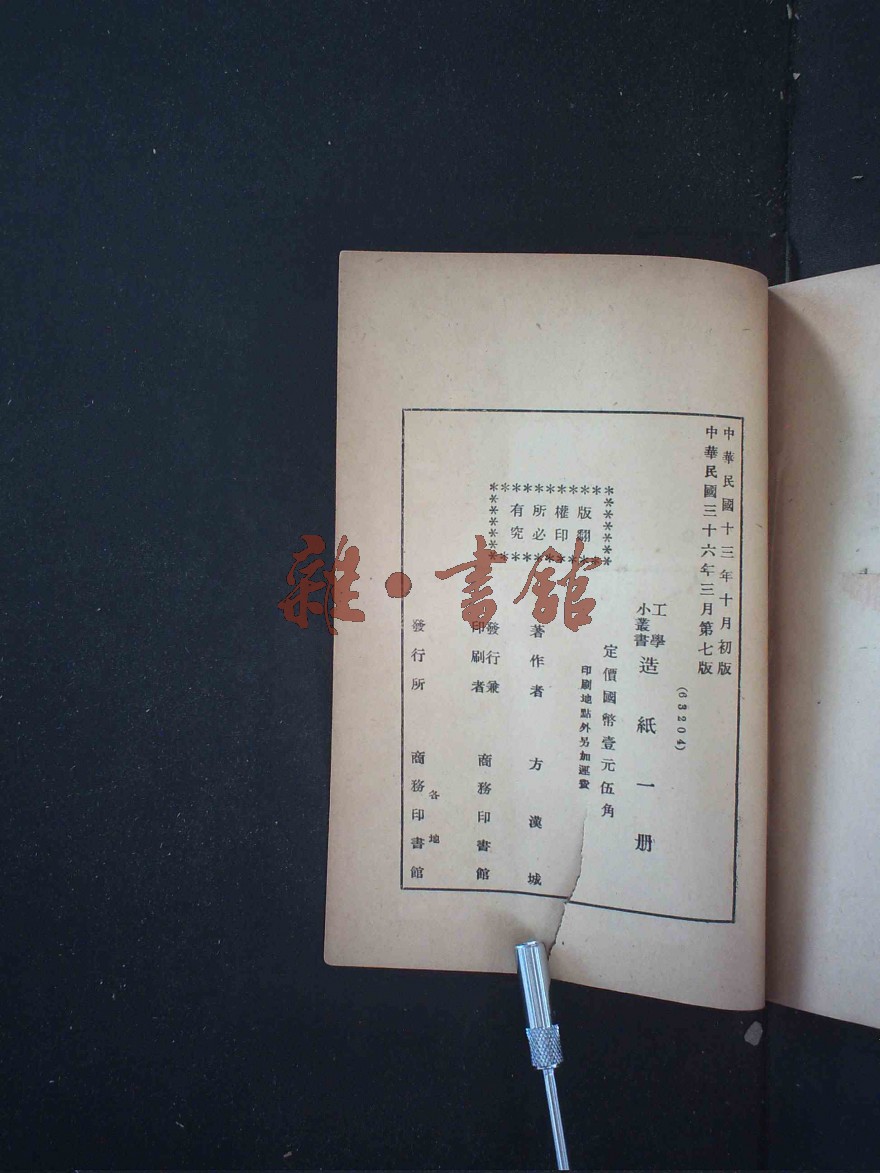 中華民國十三年十月初版
中華民國三十六年三月第七版
(63204)
工學
小叢書
造紙一册
定價國幣壹元伍角
印刷地點外另加運費
版權所有
翻印必究
著作者 方漢城
發行兼
印刷者
商務印書館
各地
發行所 商務印書館
雜·書館